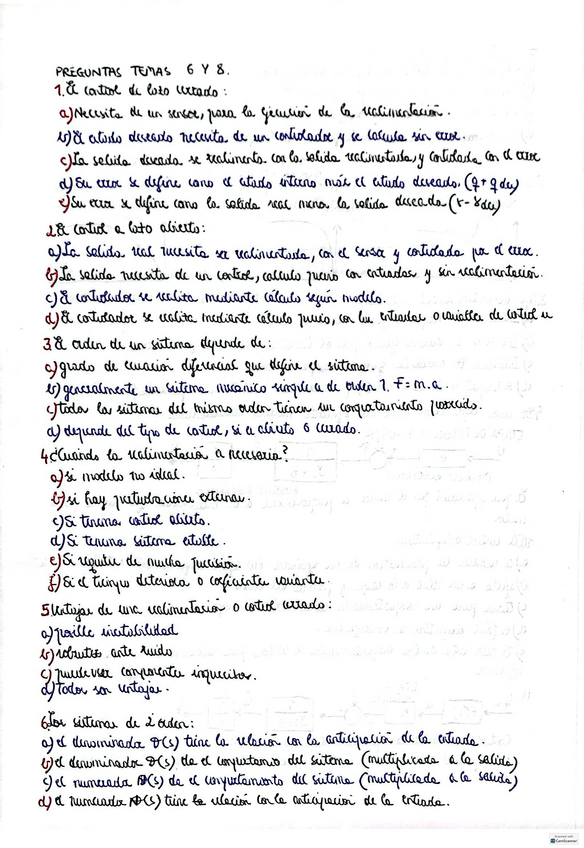 PREGUNTAS TEMAS 6 Y 8.
1. El control de lazo cerrado:
a) Necesita de un sensor, para la ejecución de la realimentación.
b) El estado deseado necesita de un controlador y se calcula sin error.
c) La salida deseada se realimenta con la salida realimentada, y controlada con el error
d) Su error se define como el estado interno más el estado deseado. (q + q des)
e) Su error se define como la salida real menos la salida deseada (r - r des)
2. El control a lazo abierto:
a) La salida real necesita ser realimentada, con el sensor y controlada por el error.
b) La salida necesita de un control, cálculo previo con entradas y sin realimentación.
c) El controlador se realiza mediante cálculo según modelo.
d) El controlador se realiza mediante cálculo previo, con las entradas o variables de control
3. El orden de un sistema depende de:
a) grado de ecuación diferencial que define el sistema.
b) generalmente un sistema mecánico simple es de orden 1. F = m.a.
c) todos los sistemas del mismo orden tienen un comportamiento parecido.
d) depende del tipo de control, si es abierto ó cerrado.
4. ¿Cuando la realimentación es necesaria?
a) si modelo no ideal.
b) si hay perturbaciones externas.
c) Si tenemos control abierto.
d) Si tenemos sistema estable.
e) Si requiere de mucha precisión.
f) Si el tiempo deteriora o coeficientes variantes.
5. Ventajas de una realimentación o control cerrado:
a) posible inestabilidad
b) robustez ante ruido
c) puede usar componentes
d) todas son ventajas.
6. Los sistemas de 2º orden:
a) el denominador D(s) tiene la relación con la anticipación de la entrada.
b) el denominador D(s) da el comportamiento del sistema (multiplicada a la salida)
c) el numerador N(s) da el comportamiento del sistema (multiplicada a la salida)
d) el numerador N(s) tiene la relación con la anticipación de la entrada.
CamScanner